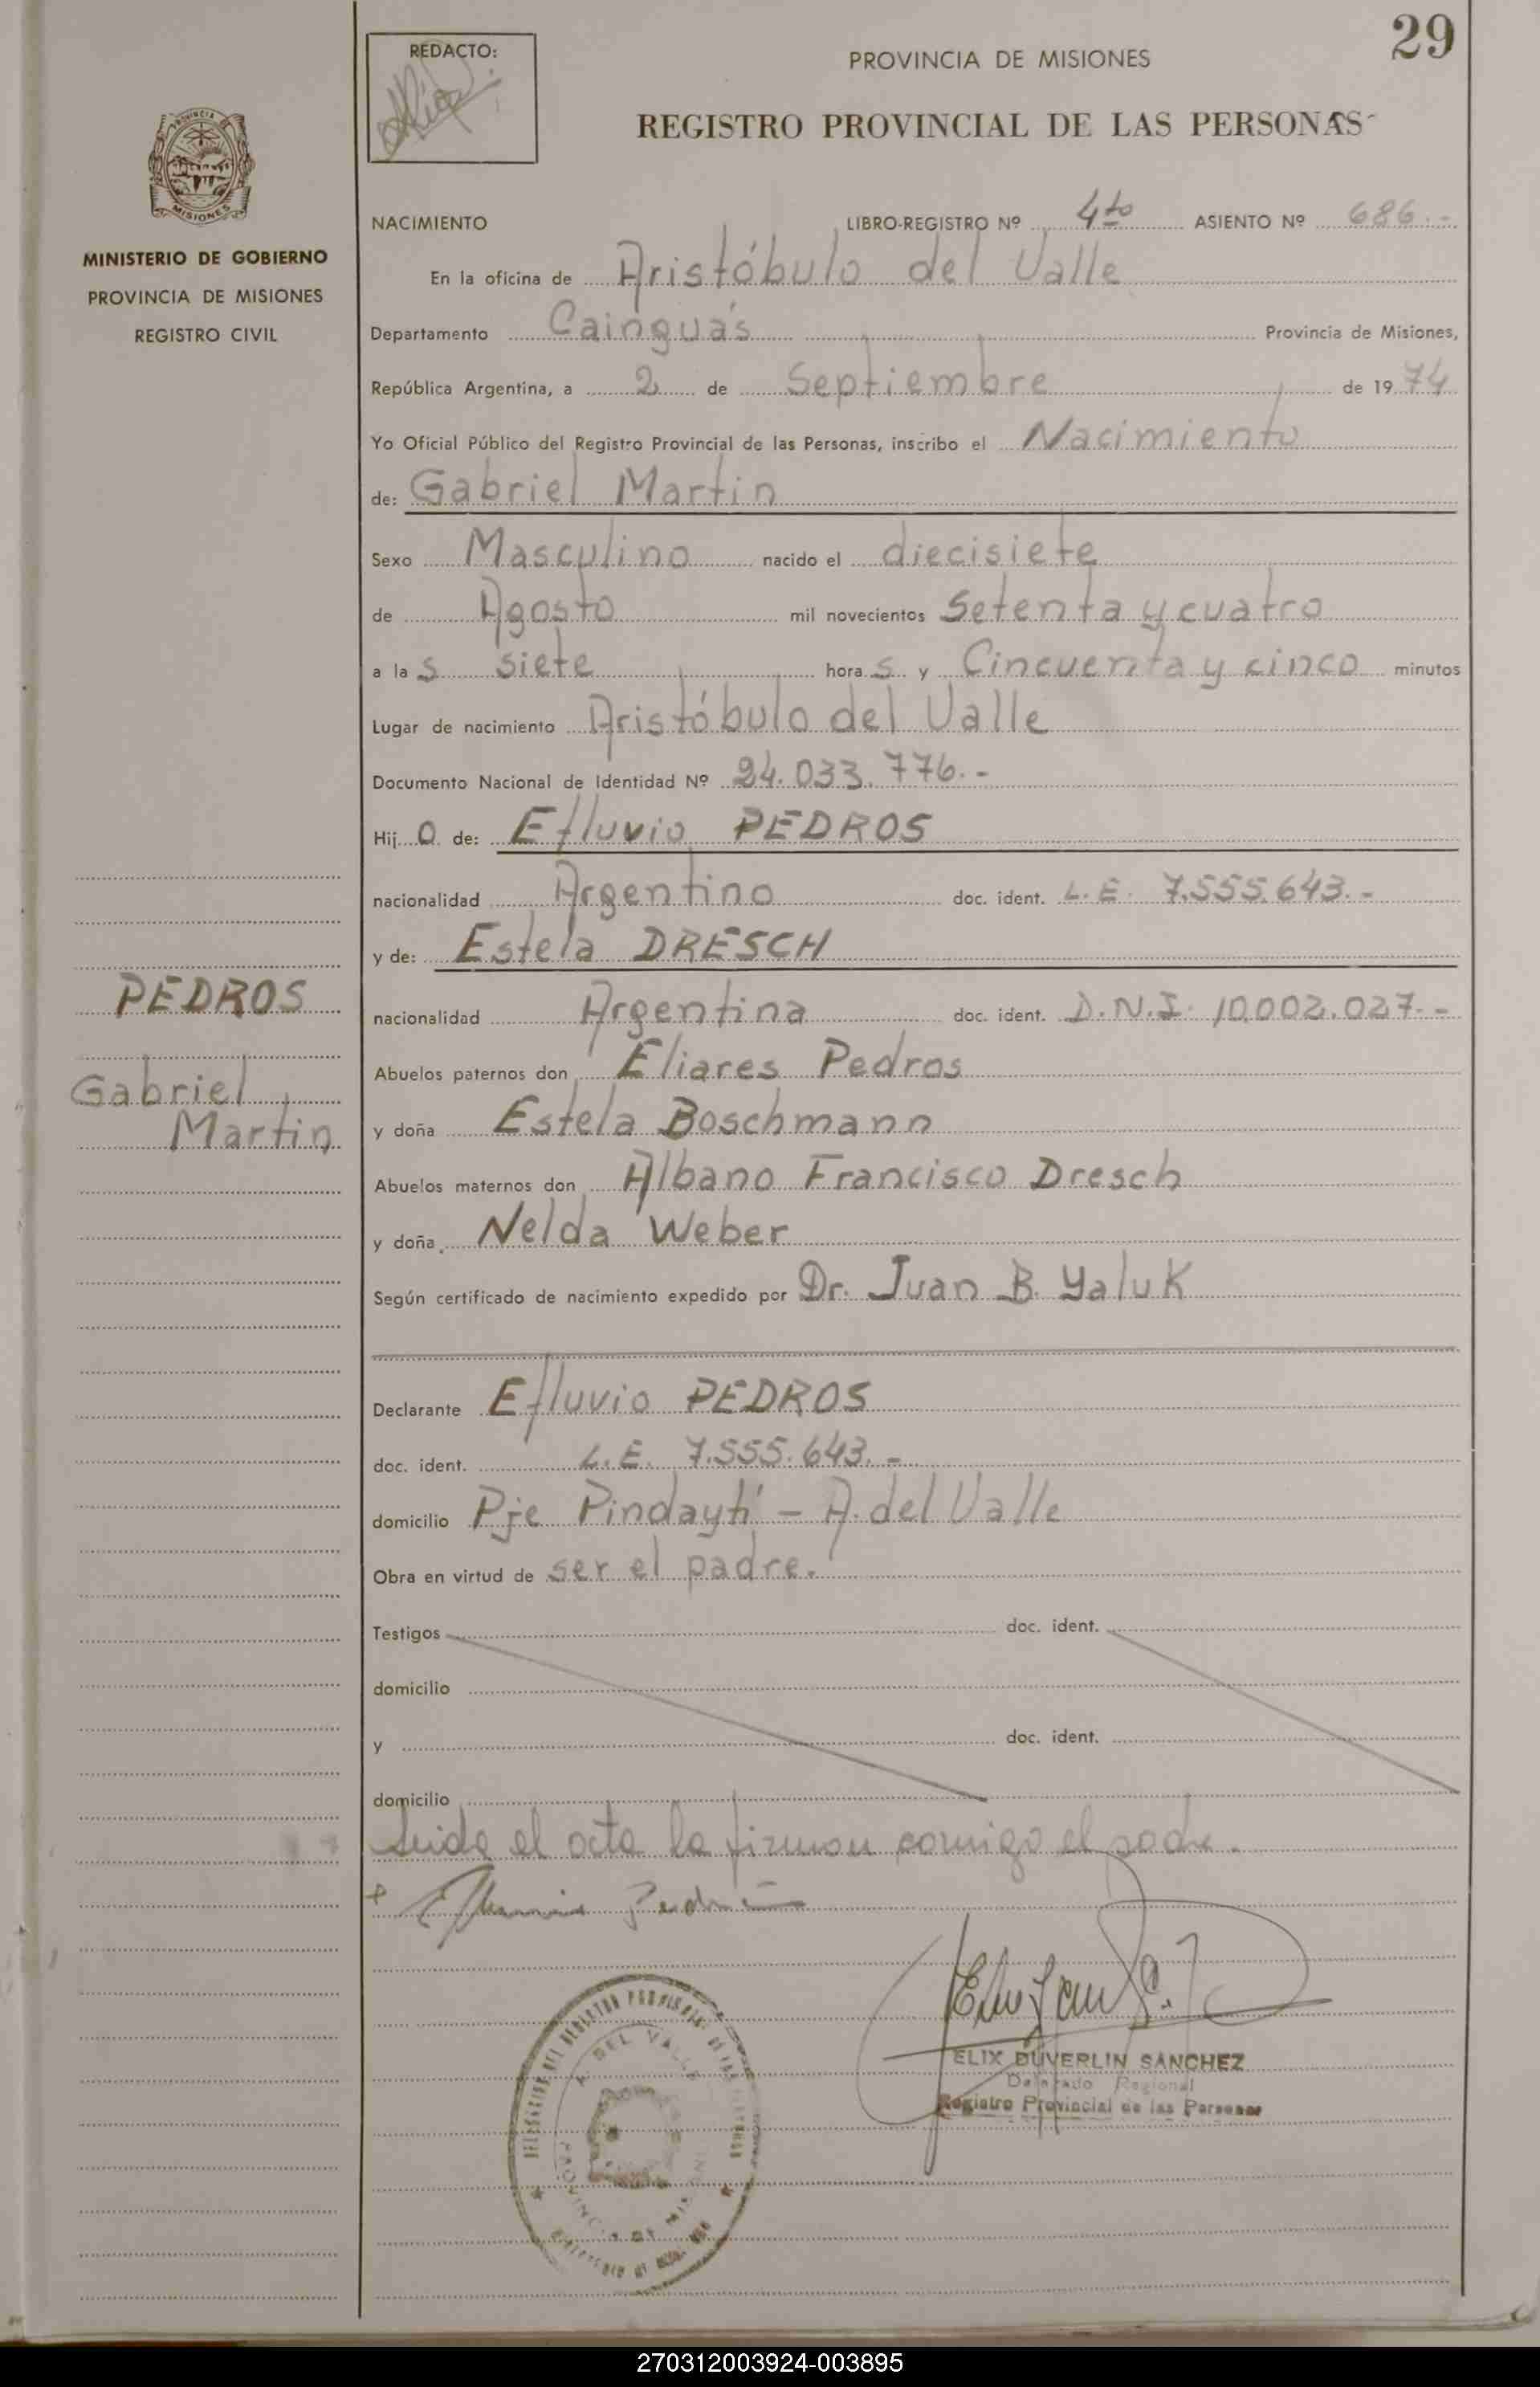 29
REDACTO:
PROVINCIA DE MISIONES
REGISTRO PROVINCIAL DE LAS PERSONAS
PROVINCIA DE
MISIONES
MINISTERIO DE GOBIERNO
PROVINCIA DE MISIONES
REGISTRO CIVIL
NACIMIENTO LIBRO-REGISTRO Nº 4to ASIENTO Nº 686.-
En la oficina de Aristóbulo del Valle
Departamento Cainguás Provincia de Misiones,
República Argentina, a 2 de Septiembre de 1974
Yo Oficial Público del Registro Provincial de las Personas, inscribo el Nacimiento
de: Gabriel Martin
Sexo Masculino nacido el diecisiete
de Agosto mil novecientos Setenta y cuatro
a las siete horas y Cincuenta y cinco minutos
Lugar de nacimiento Aristóbulo del Valle
Documento Nacional de Identidad Nº 24.033.776.-
Hijo de: Efluvio PEDROS
nacionalidad Argentino doc. ident. L.E. 7.555.643.-
y de: Estela DRESCH
nacionalidad Argentina doc. ident. D.N.I. 10.002.027.-
Abuelos paternos don Eliares Pedros
y doña Estela Boschmann
Abuelos maternos don Albano Francisco Dresch
y doña Nelda Weber
Según certificado de nacimiento expedido por Dr. Juan B. Yaluk
PEDROS
Gabriel
Martin
Declarante Efluvio PEDROS
doc. ident. L.E. 7.555.643.-
domicilio Pje Pindaytí - A. del Valle
Obra en virtud de ser el padre.
Testigos doc. ident.
domicilio
y doc. ident.
domicilio
Leida el acta la firman conmigo el padre.
Efluvio Pedros
ELIX DUVERLIN SANCHEZ
Delegado Regional
Registro Provincial de las Personas
A. DEL VALLE
PROVINCIA DE MISIONES
270312003924-003895